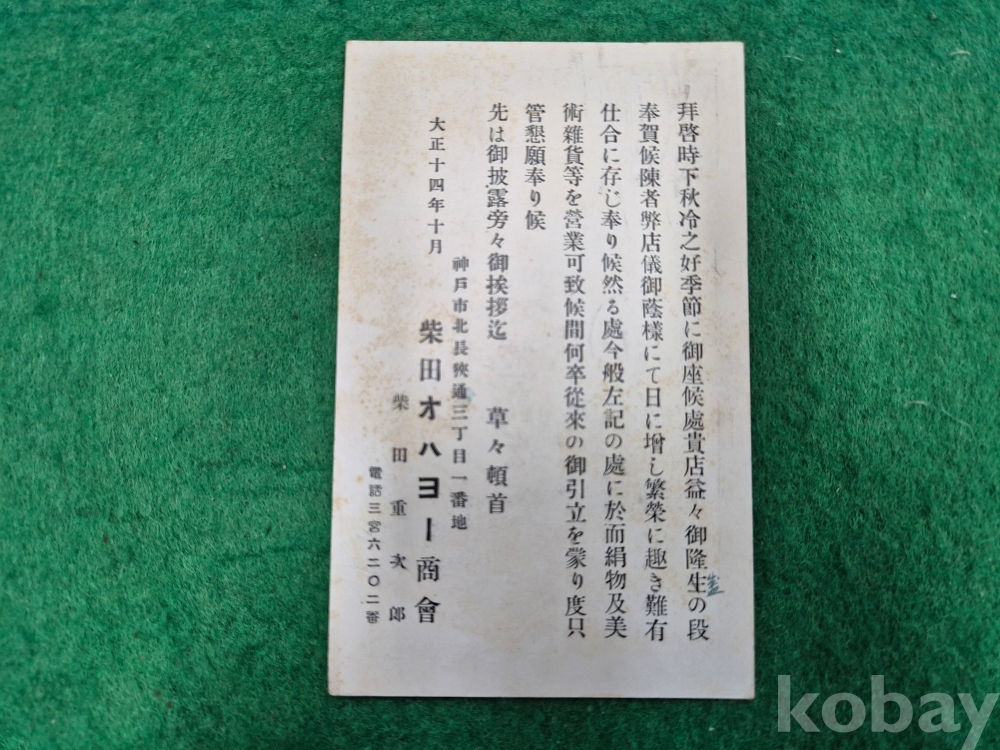 拜啓時下秋冷之好季節に御座候處貴店益々御隆生の段
奉賀候陳者弊店儀御蔭様にて日に增し繁榮に趣き難有
仕合に存じ奉り候然る處今般左記の處に於而絹物及美
術雜貨等を營業可致候間何卒從來の御引立を蒙り度只
管懇願奉り候
先は御披露旁々御挨拶迄 草々頓首
大正十四年十月
神戸市北長狹通三丁目一番地
柴田オハヨー商會
柴田重次郎
電話三宮六二〇二番
kobay